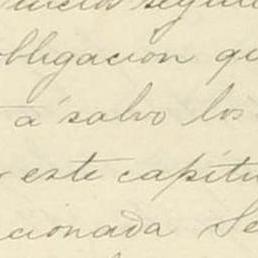 obligacion qu
a salvo los
este capitu
cionada Se